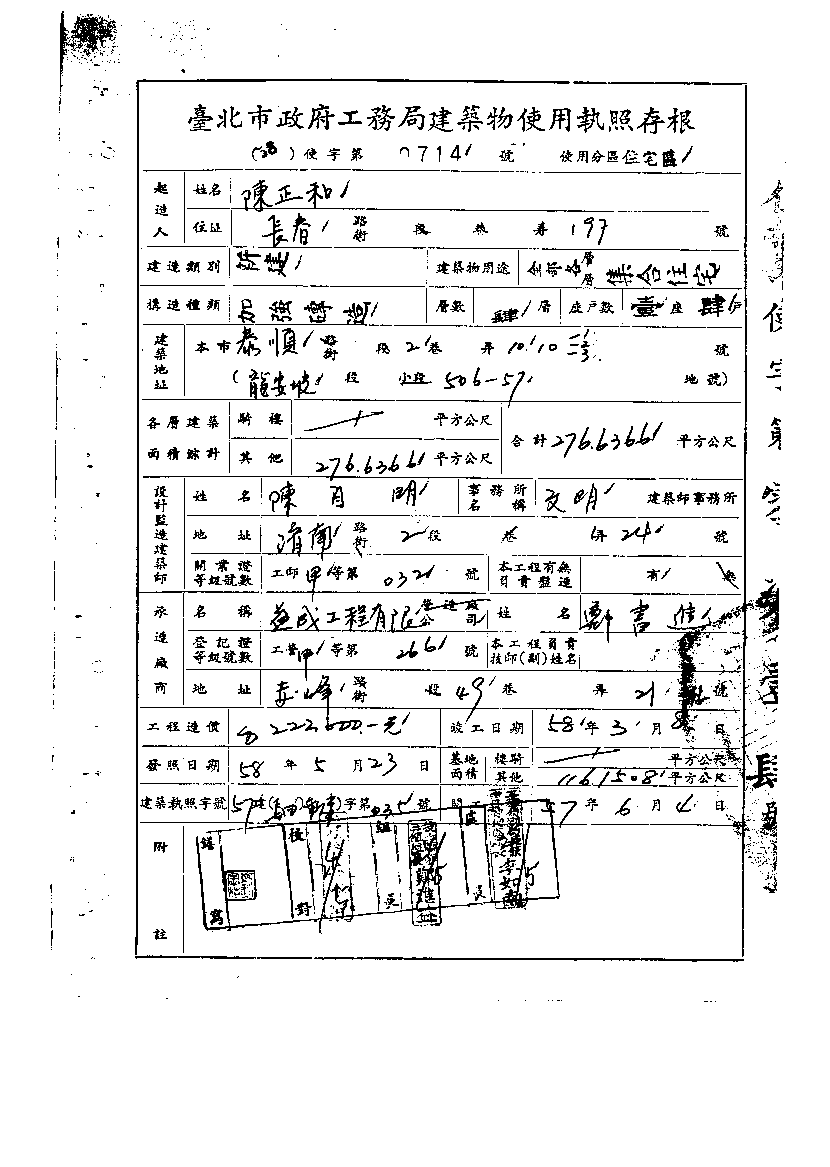 臺北市政府工務局建築物使用執照存根
(58)使字第 0714 號 使用分區住宅區
起造人 姓名 陳正和
住址 長春 路街 段 巷 弄 197 號
建造類別 建築物用途 全部各層層集合住宅
構造種類 加強磚造 層數 肆 層 座戶數 壹 座 肆 戶
建築地址 本市 泰順 路街 段 2 巷 弄 10.10 號
(龍安坡 段 小段 506-57 地號)
各層建築面積綜計 騎樓 平方公尺 合計 276.6366 平方公尺
其他 276.6366 平方公尺
設計監造建築師 姓名 陳 明 事務所名稱 文明 建築師事務所
地址 路街 2 段 巷 弄 24 號
開業證等級號數 工師 甲 等第 032 號 本工程有無負責監造 有 無
承造廠商 名稱 益成工程有限 營造廠公司 姓名 鄭書
登記證等級號數 工營 甲 等第 266 號 本工程負責技師(副)姓名
地址 赤峰 路街 段 49 巷 弄 21 號
工程造價 222000.-元 竣工日期 58 年 3 月 8 日
發照日期 58 年 5 月 23 日 基地面積 樓騎 平方公尺
其他 116.1508 平方公尺
建築執照字號 57 字第 035 號 開工 57 年 6 月 4 日
附註 繕寫 校對 組長 處長